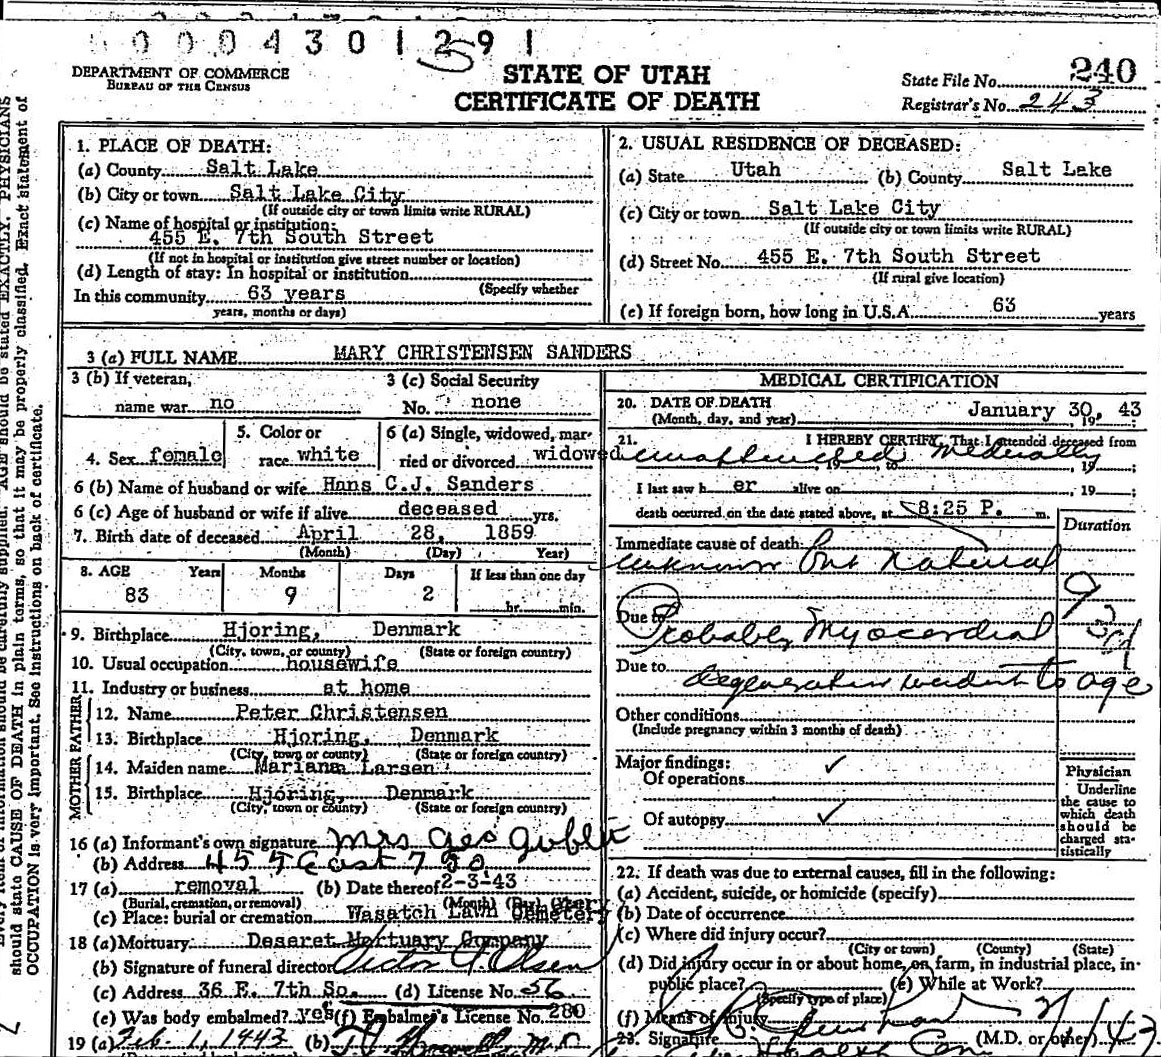 0 0 0 4 3 0 1 2 5 9 1
DEPARTMENT OF COMMERCE
BUREAU OF THE CENSUS
STATE OF UTAH
CERTIFICATE OF DEATH
State File No. 240
Registrar's No. 243
should state CAUSE OF DEATH in plain terms, so that it may be properly classified. Exact statement of
OCCUPATION is very important. See instructions on back of certificate.
1. PLACE OF DEATH:
(a) County Salt Lake
(b) City or town Salt Lake City
(If outside city or town limits write RURAL)
(c) Name of hospital or institution:
455 E. 7th South Street
(If not in hospital or institution give street number or location)
(d) Length of stay: In hospital or institution
(Specify whether
In this community 63 years
years, months or days)
2. USUAL RESIDENCE OF DECEASED:
(a) State Utah (b) County Salt Lake
(c) City or town Salt Lake City
(If outside city or town limits write RURAL)
(d) Street No. 455 E. 7th South Street
(If rural give location)
(e) If foreign born, how long in U.S.A. 63 years
3 (a) FULL NAME MARY CHRISTENSEN SANDERS
3 (b) If veteran,
name war no
3 (c) Social Security
No. none
4. Sex female
5. Color or
race white
6 (a) Single, widowed, mar-
ried or divorced widowed
6 (b) Name of husband or wife Hans C.J. Sanders
6 (c) Age of husband or wife if alive deceased yrs.
7. Birth date of deceased April 28, 1859
(Month) (Day) Year)
8. AGE Years Months Days If less than one day
83 9 2 hr. min.
9. Birthplace Hjoring, Denmark
(City, town, or county) (State or foreign country)
10. Usual occupation housewife
11. Industry or business at home
FATHER
12. Name Peter Christensen
13. Birthplace Hjoring, Denmark
(City, town or county) (State or foreign country)
MOTHER
14. Maiden name Mariana Larsen
15. Birthplace Hjoring, Denmark
(City, town or county) (State or foreign country)
16 (a) Informant's own signature Mrs Geo
(b) Address 455 East 7 So
17 (a) removal (b) Date thereof 2-3-43
(Burial, cremation, or removal) (Month) (Day) (Year)
(c) Place: burial or cremation Wasatch Lawn Cemetery
18 (a) Mortuary Deseret Mortuary Company
(b) Signature of funeral director Victor Olsen
(c) Address 36 E. 7th So. (d) License No. 56
(e) Was body embalmed? yes (f) Embalmer's License No. 280
19 (a) Feb 1, 1943 (b) M.D.
MEDICAL CERTIFICATION
20. DATE OF DEATH
(Month, day, and year) January 30, 19 43
21. I HEREBY CERTIFY, That I attended deceased from
unattended medically, 19 , to , 19 ;
I last saw h er alive on , 19 ;
death occurred on the date stated above, at 8:25 P. m.
Duration
Immediate cause of death:
unknown but natural
Due to Probably Myocardial
Due to degeneration incident to age
Other conditions
(Include pregnancy within 3 months of death)
Major findings:
Of operations ✓
Of autopsy ✓
Physician
Underline
the cause to
which death
should be
charged sta-
tistically
22. If death was due to external causes, fill in the following:
(a) Accident, suicide, or homicide (specify)
(b) Date of occurrence
(c) Where did injury occur?
(City or town) (County) (State)
(d) Did injury occur in or about home, on farm, in industrial place, in-
public place? (e) While at Work?
(Specify type of place)
(f) Means of injury
23. Signature (M.D. or other)